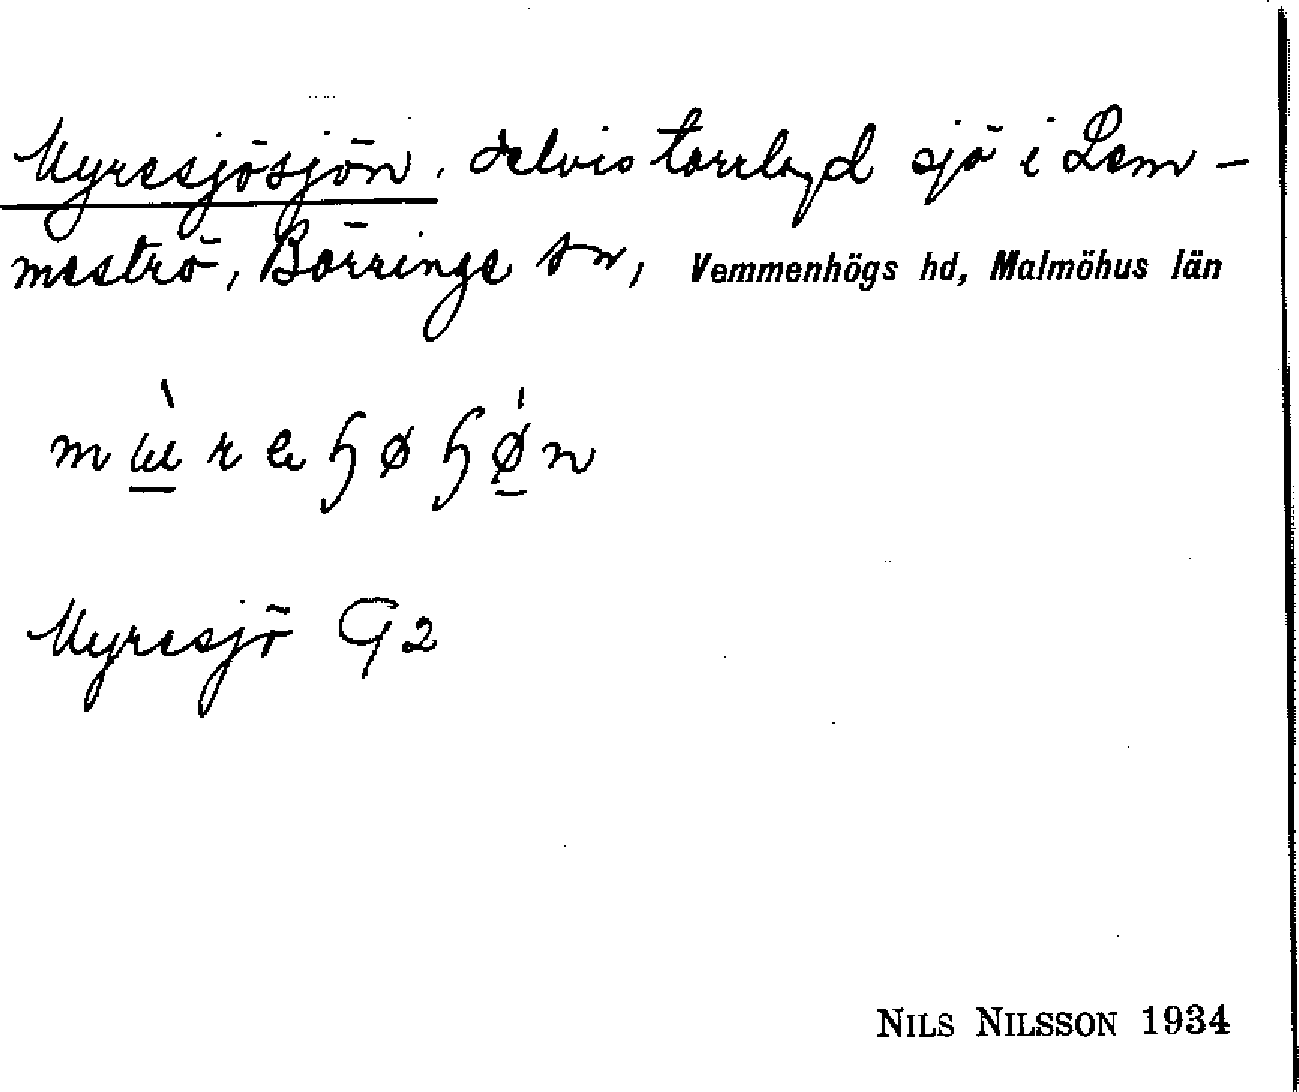 Myresjösjön, delvis torrlagd sjö i Lem-
meströ, Börringe sn, Vemmenhögs hd, Malmöhus län
Myresjö G2
NILS NILSSON 1934